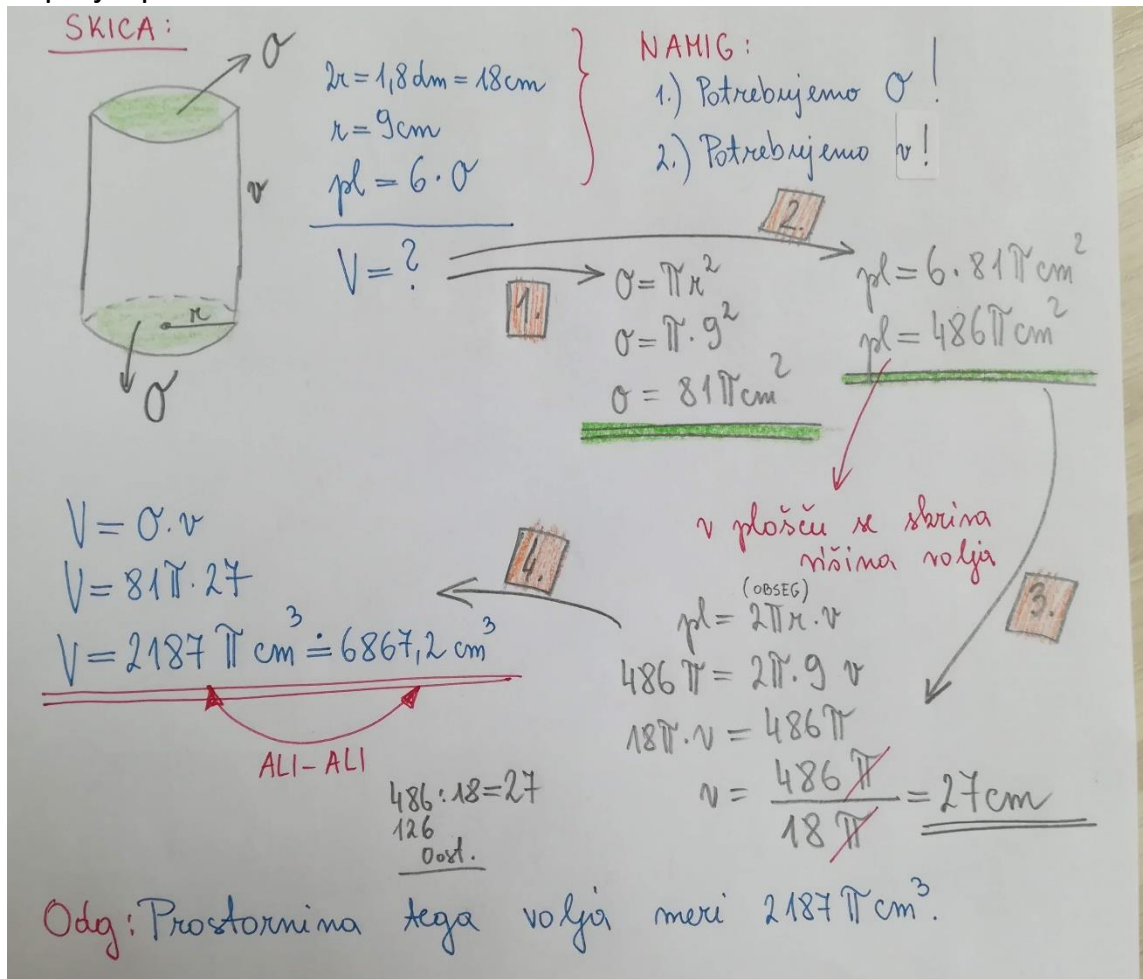 SKICA:
O
2r = 1,8 dm = 18 cm
r = 9 cm
pl = 6 · O
V = ?
v
r
O
NAMIG:
1.) Potrebujemo O!
2.) Potrebujemo v!
1.
O = πr²
O = π · 9²
O = 81π cm²
2.
pl = 6 · 81π cm²
pl = 486π cm²
v plošču se skriva
višina valja
3.
(OBSEG)
pl = 2πr · v
486π = 2π · 9 v
18π · v = 486π
v = 486π / 18π = 27 cm
4.
V = O · v
V = 81π · 27
V = 2187 π cm³ ≐ 6867,2 cm³
ALI - ALI
486 : 18 = 27
126
0 ost.
Odg: Prostornina tega valja meri 2187 π cm³.